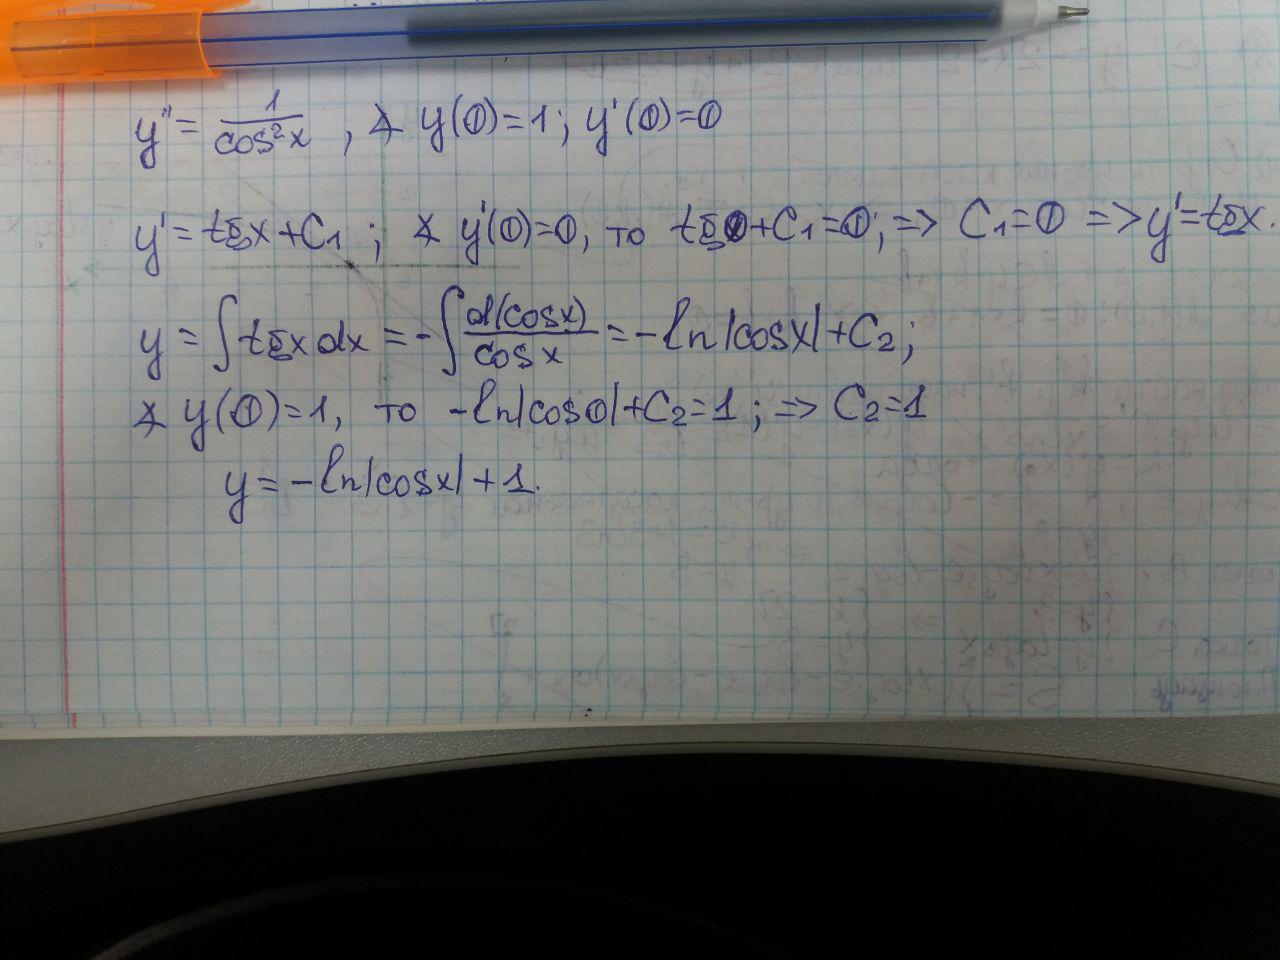 y'' = 1/cos²x , ∡ y(0)=1; y'(0)=0
y' = tgx+C₁ ; ∡ y'(0)=0, то tg0+C₁=0; => C₁=0 => y'=tgx.
y = ∫tgxdx = -∫d(cosx)/cosx = -ln|cosx|+C₂;
∡ y(0)=1, то -ln|cos0|+C₂=1; => C₂=1
y = -ln|cosx|+1.